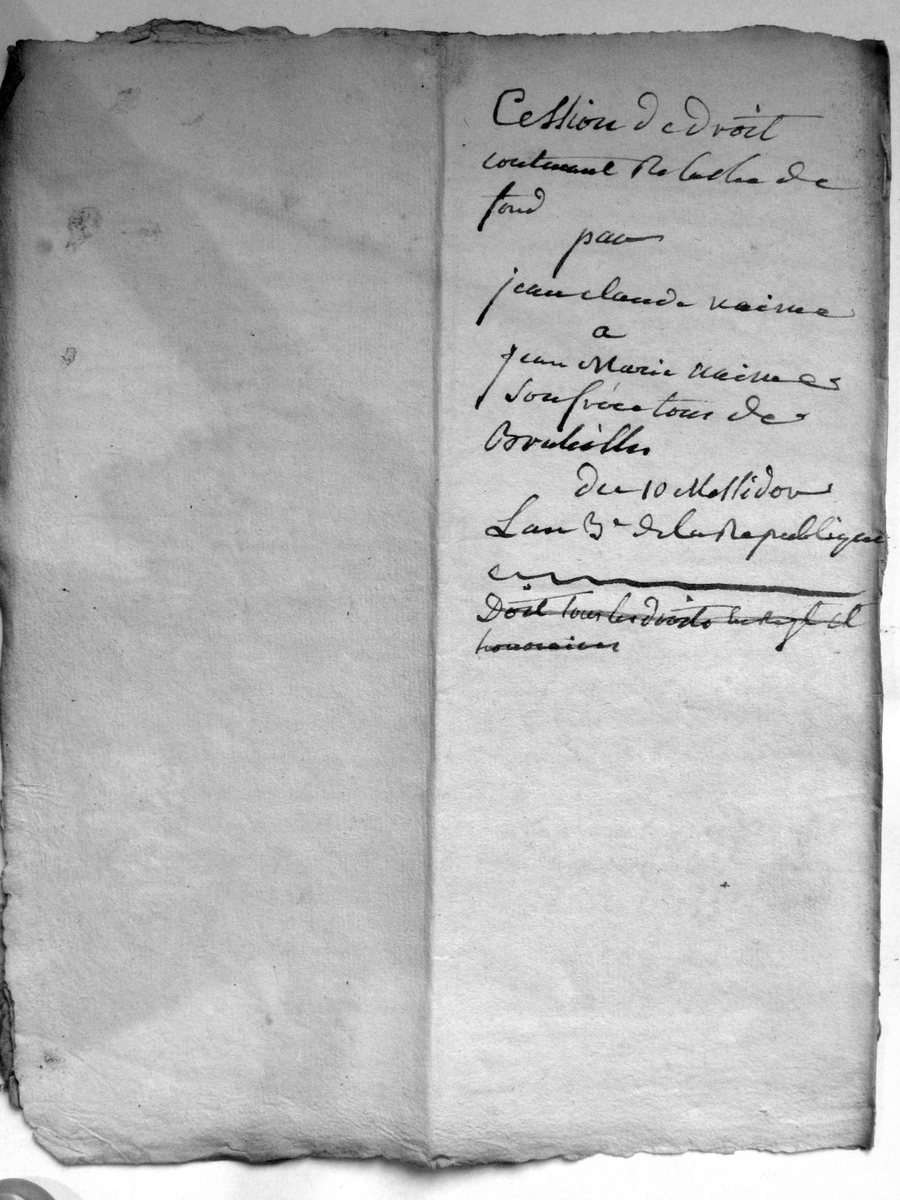 Cession de droit
contenant Relache de
fond
par
jean claude naime
a
jean Marie naime
son frère tous de
du 10 Messidor
Lan 3e de la Republique
Doit tous les droits et
honoraires